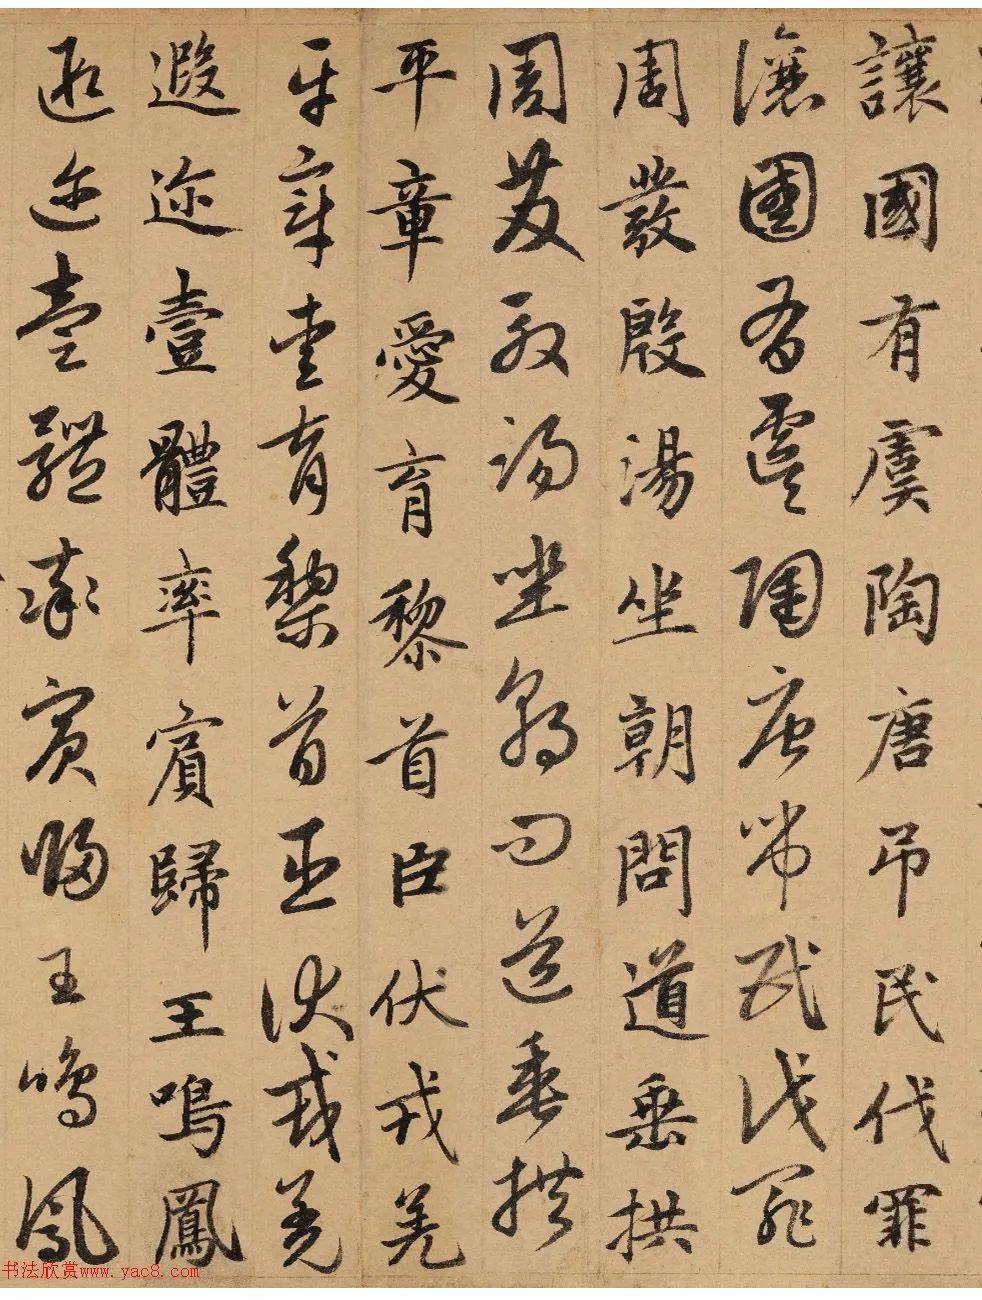 讓國有虞陶唐吊民伐罪
讓國有虞陶唐吊民伐罪
周發殷湯坐朝問道垂拱
周發殷湯坐朝問道垂拱
平章愛育黎首臣伏戎羌
平章愛育黎首臣伏戎羌
遐迩壹體率賓歸王鳴鳳
遐迩壹體率賓歸王鳴鳳
书法欣赏www.yac8.com